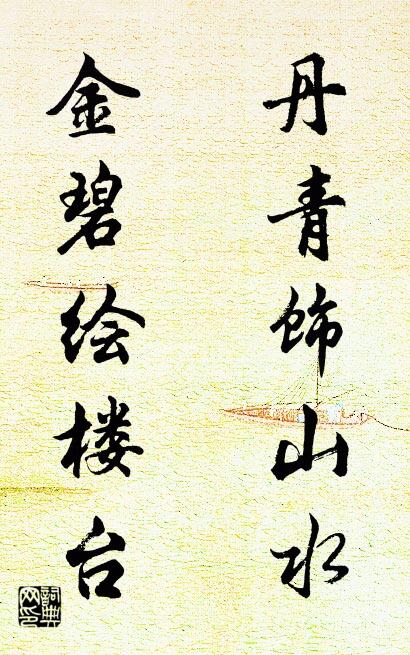 丹青饰山水
金碧绘楼台
词典网印